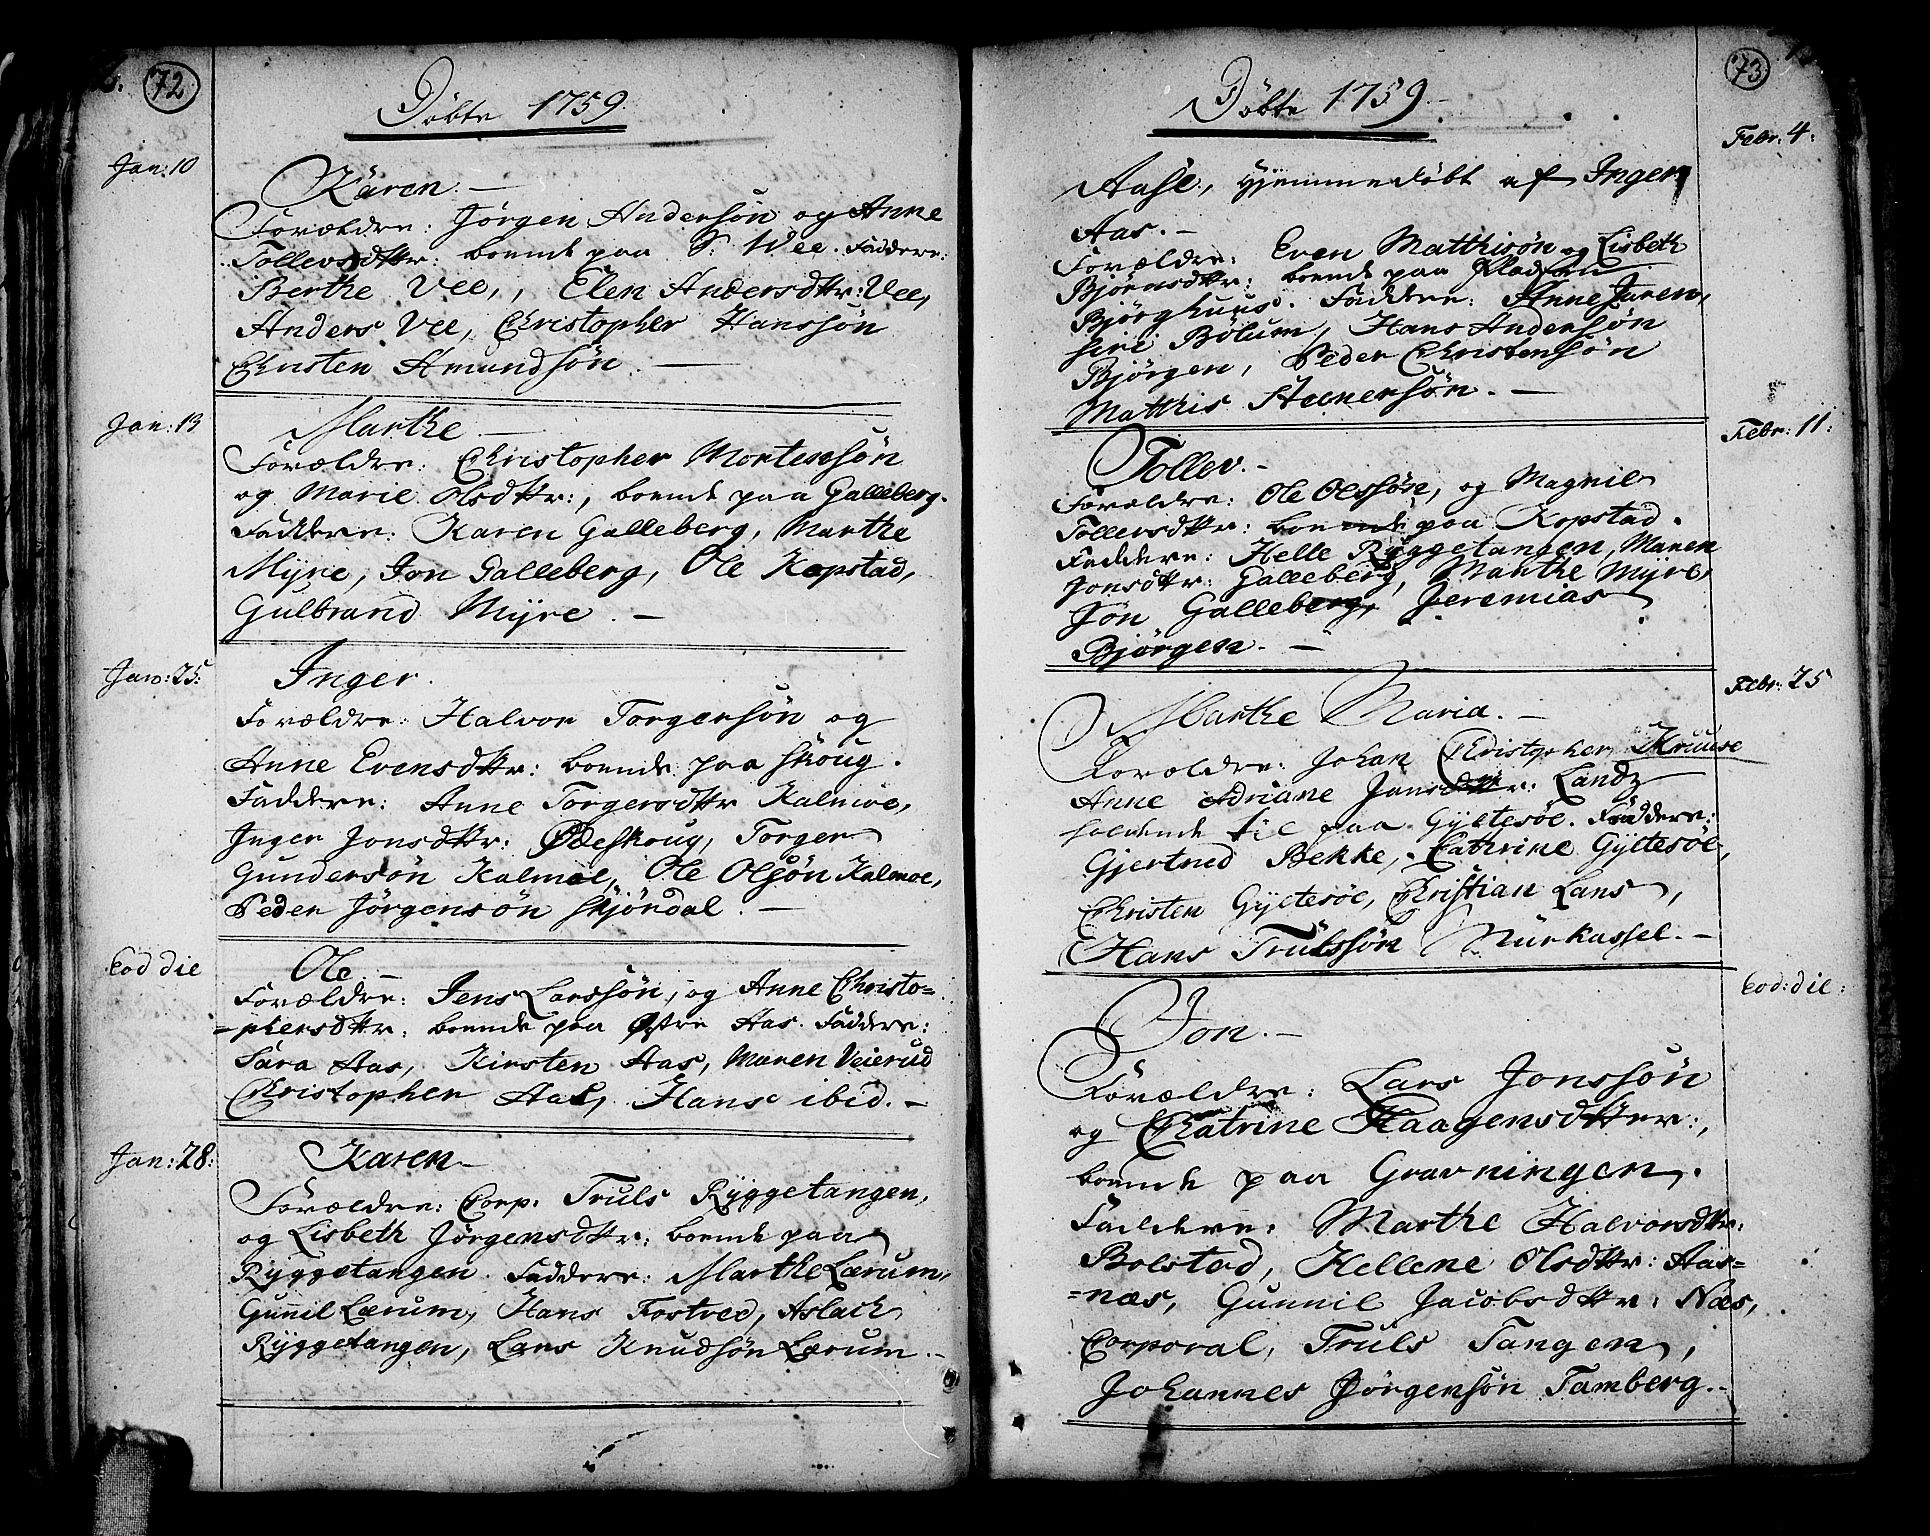 72
Döbte 1759.
Jan: 10
Karen. —
Forældre: Jørgen Andersøn og Anne
Tollevsdttr: boende paa S: Vee. Faddere:
Berthe Vee, Elen Andersdttr: Vee,
Anders Vee, Christopher Hanssøn
Christen Amundsøn. —
Jan: 13
Marthe —
Forældre: Christopher Mortenssøn
og Marie Olsdttr:, boende paa Galleberg.
Faddere: Karen Galleberg, Marthe
Myre, Jon Galleberg, Ole Kopstad,
Gulbrand Myre. —
Jan: 25:
Inger.
Forældre: Halvor Torgersøn og
Anne Evensdttr: boende paa Skoug.
Faddere: Anne Torgersdttr Kalmoe,
Inger Jonsdttr: Ødeskoug, Torger
Gundersøn Kalmoe, Ole Olsøn Kalmoe,
Peder Jørgensøn Skjørdal. —
Eod die
Ole. —
Forældre: Jens Larssøn, og Anne Christo=
=phersdttr: boende paa Østre Aas. Faddere:
Sara Aas, Kirsten Aas, Maren Veierud
Christopher Aas, Hans ibid. —
Jan: 28:
Karen —
Forældre: Corp. Truls Ryggetangen,
og Lisbeth Jørgensdttr: boende paa
Ryggetangen. Faddere: Marthe Lærum,
Gunnil Lærum, Hans Fostved, Aslach
Ryggetangen, Lars Knudsøn Lærum. —
73
Döbte 1759. —
Febr: 4:
Aase, hjemmedöbt af Inger
Aas. —
Forældre: Even Matthisøn og Lisbeth
Bjørnsdttr: boende paa Pladsen
Bjørghuus. Faddere: Anne Juren,
Siri Bolum, Hans Andersøn
Bjørgen, Peder Christensøn
Matthis Steenersøn. —
Febr: 11:
Tollev. —
Forældre: Ole Olssøn, og Magnil
Tollersdttr: boende paa Kopstad.
Faddere: Helle Ryggetangen, Maren
Jonsdttr: Galleberg, Marthe Myre,
Jøn Galleberg, Jeremias
Bjørgen. —
Febr: 25
Marthe Maria. —
Forældre: Johan Christopher Kruuse
Anne Adriane Jansdttr: Landz
holdende til paa Gyltesöe. Faddere:
Gjertrud Bekke, Cathrine Gyltesöe,
Christen Gyltesöe, Christian Lans,
Hans Trulssøn Mürkassel. —
Eod: die:
Jon. —
Forældre: Lars Jonssøn
og Chatrine Haagensdtter:,
boende paa Gravningen.
Faddere: Marthe Halvorsdttr:
Bolstad, Hellene Olsdttr: Aas=
=næs, Gunnil Jacobsdttr: Næs,
Corporal, Truls Tangen,
Johannes Jørgensøn Tamberg. —